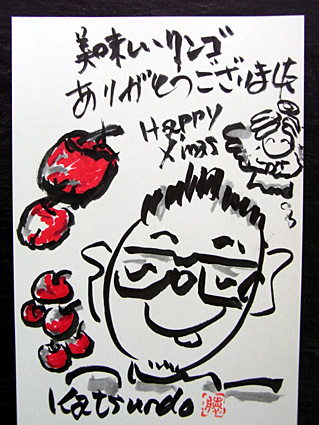 美味しいリンゴ
ありがとうございます
Happy
Xmas
Katsundo